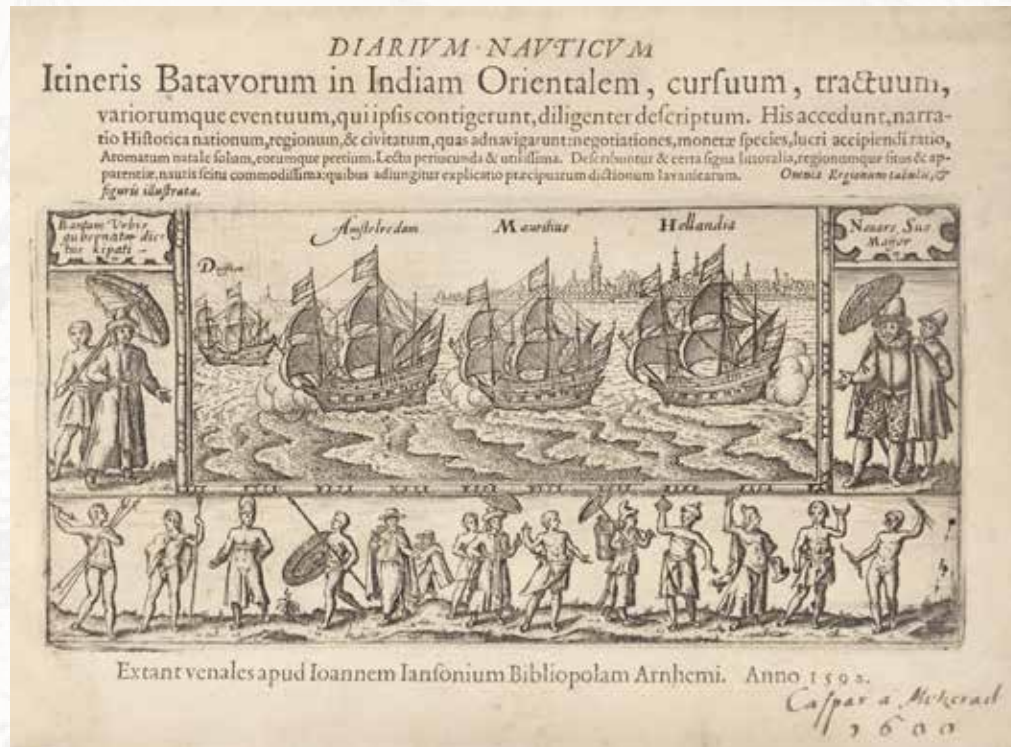 DIARIVM NAVTICVM
Itineris Batavorum in Indiam Orientalem, curſuum, tractuum,
variorumque eventuum, qui ipſis contigerunt, diligenter deſcriptum. His accedunt, narra-
tio Hiſtorica nationum, regionum, & civitatum, quas adnavigarunt: negotiationes, monetæ ſpecies, lucri accipiendi ratio,
Aromatum natale ſolum, eorumque pretium. Lectu periucunda & utiliſſima. Deſcribuntur & certa ſigna littoralia, regionumque ſitus & ap-
parentiæ, nautis ſcitu commodiſſima: quibus adiungitur explicatio præcipuarum dictionum Iavanicarum. Omnia Regionum tabulis, &
figuris illuſtrata.
Bantam Vrbis
gubernator dic-
tus kipati
Amſtelredam
Mauritius
Hollandia
Duyfken
Major
Extant venales apud Ioannem Ianſonium Bibliopolam Arnhemi. Anno 1598.
Caſpar a
1600